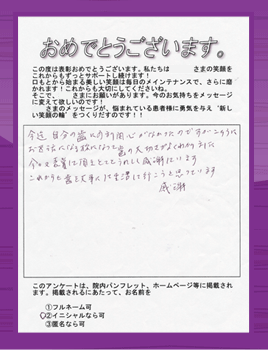 おめでとうございます。
この度は表彰おめでとうございます。私たちは　　さまの笑顔を
これからもずっとサポートし続けます！
口もとから始まる美しい笑顔は毎日のメインテナンスで、さらに磨
かれます。これからも大切にしてくださいね。
そこで、　　さまにお願いがあります。今のお気持ちをメッセージ
に変えて欲しいのです！
さまのメッセージが、悩まれている患者様に勇気を与え“新し
い笑顔の輪”をつくりだすのです！！
今迄自分の歯に余り関心がなかったのですがこちらに
お世話になる様になって歯の大切さがよくわかりました
今回表賞に
これからも歯を大事にして生活に行こうと思っています
感謝
このアンケートは、院内パンフレット、ホームページ等に掲載されま
す。掲載されるにあたって、お名前を
①フルネーム可
②イニシャルなら可
③匿名なら可